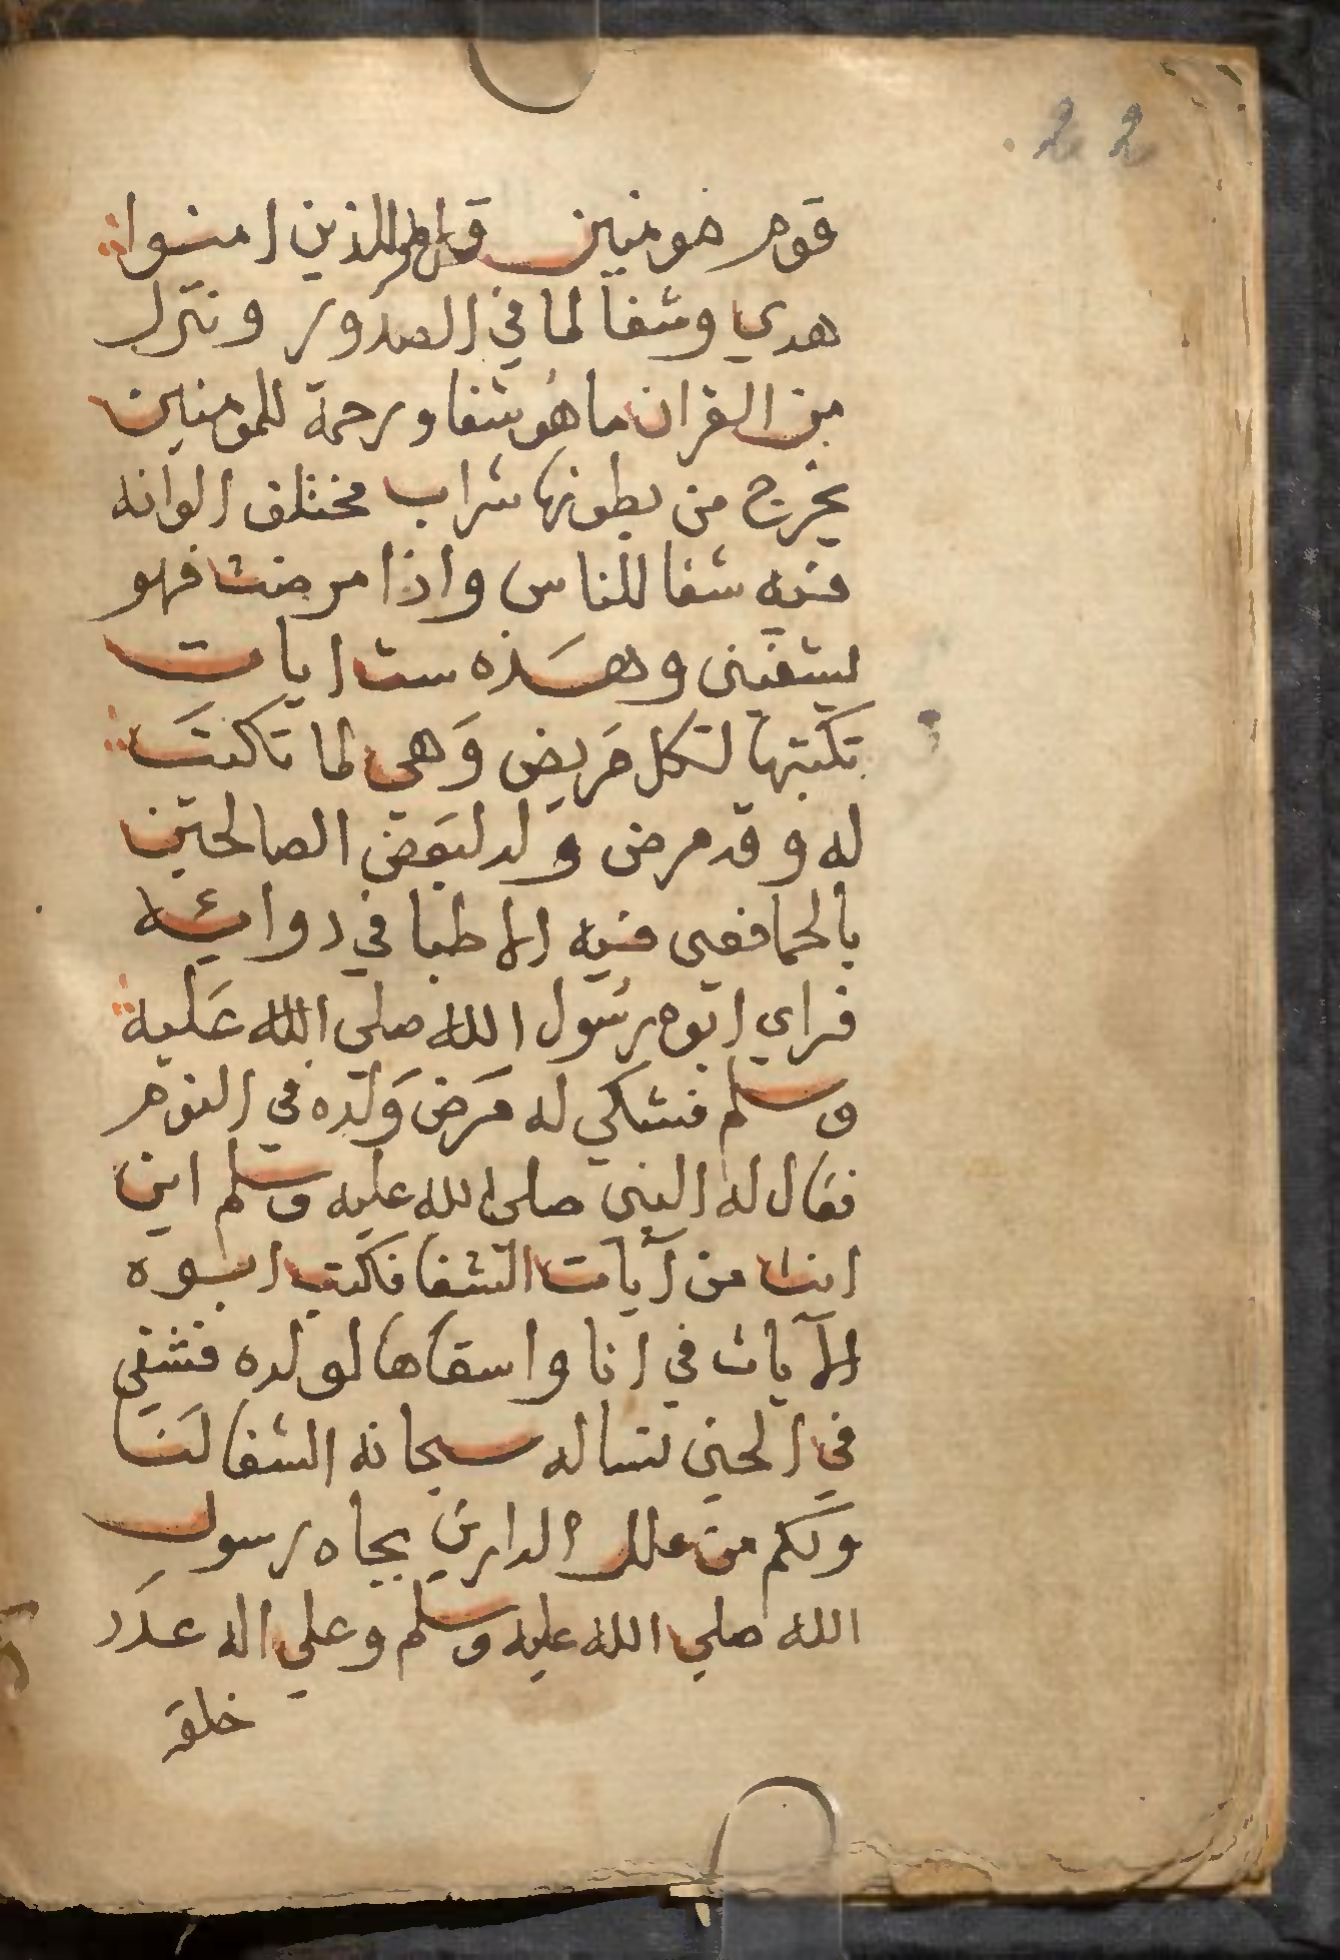 22
قوم مومنين قل هو للذين امنوا
هدي وشفا لما في الصدور وننزل
من القران ما هو شفا ورحمة للمومنين
يخرج من بطونها شراب مختلف الوانه
فيه شفا للناس واذا مرضت فهو
يشفيني وهذه ست ايات
تكتبها لكل مريض وهي لما تكتب
له وقد مرض ولد لبعض الصالحين
بالحما فعيى فيه الاطبا في دوائيه
فراي ابوه رسول الله صلي الله عليه
وسلم فشكي له مرض ولده في النوم
فقال له النبي صلي الله عليه وسلم اين
انت من آيات الشفا فكتب ابوه
الآيات في انا واسقاها لولده فشفي
في الحين نساله سبحانه الشفا لنا
ولكم من علل الدارين بجاه رسول
الله صلي الله عليه وسلم وعلي اله عدد
خلقه